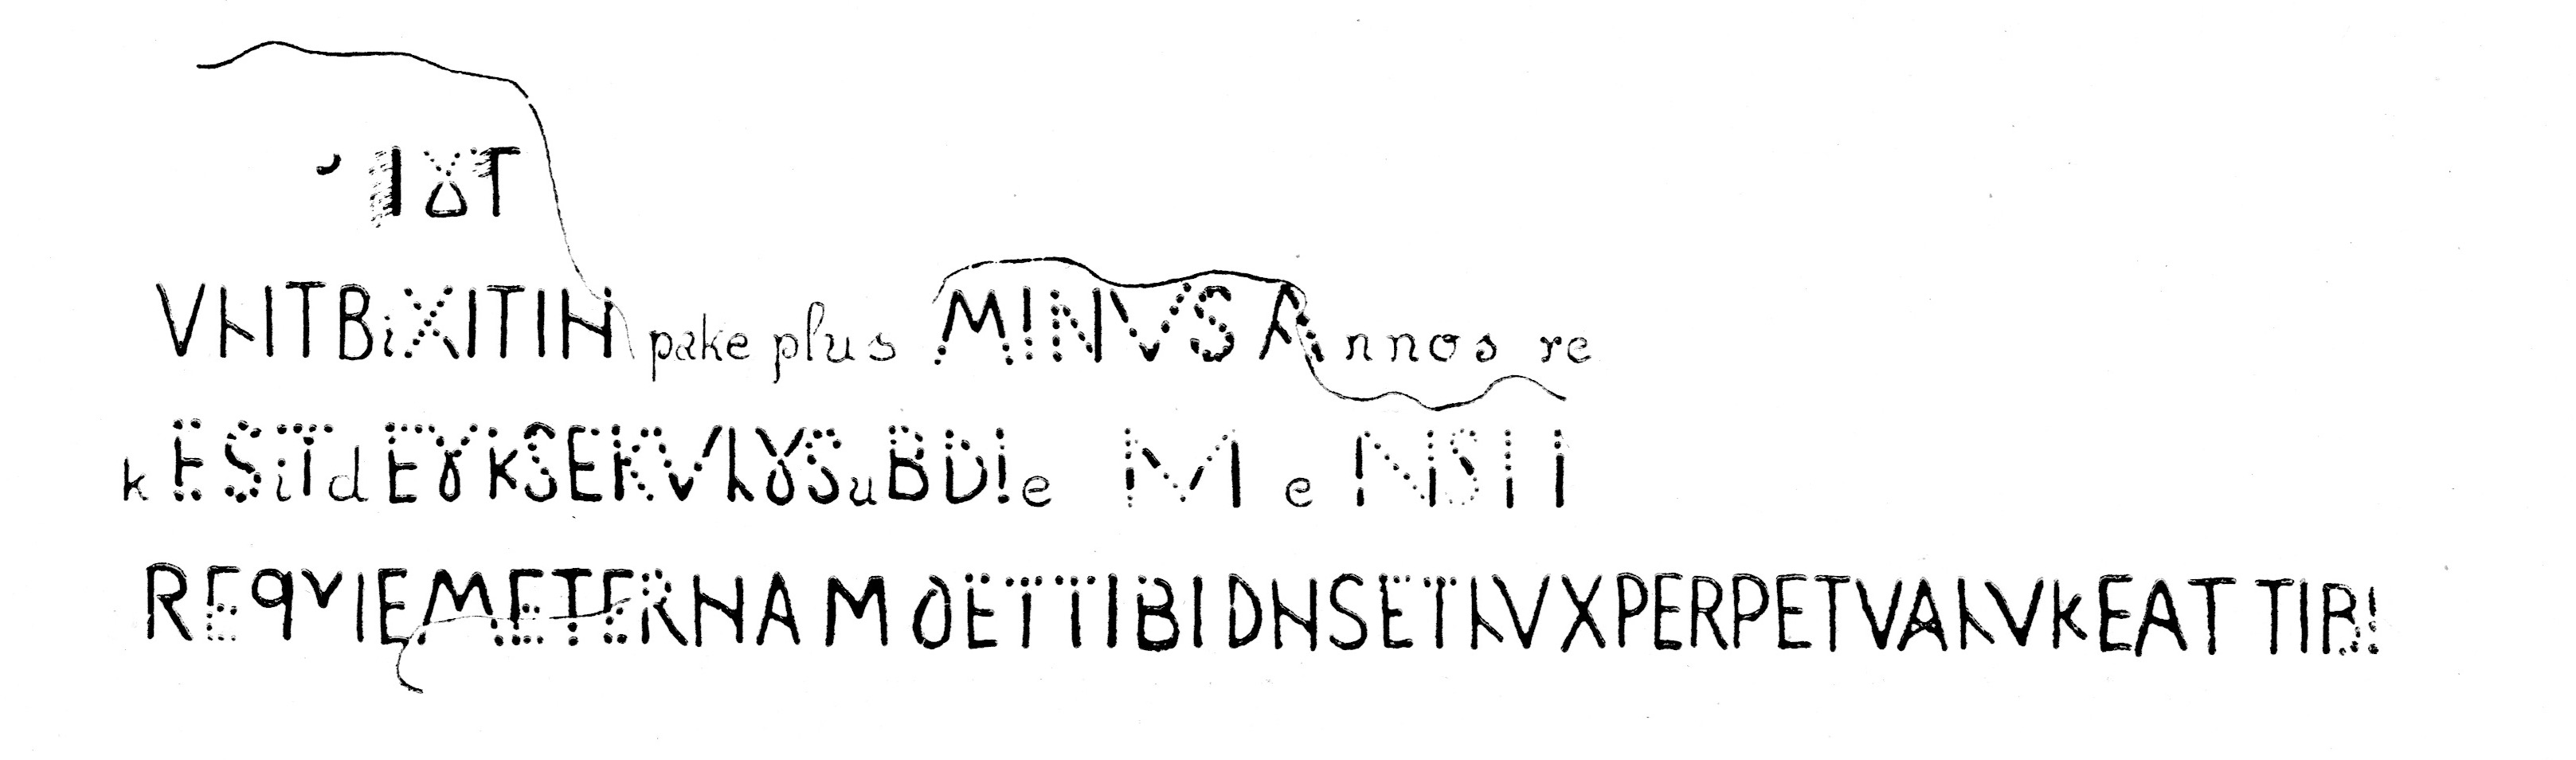 IȣT
VLIT BiXIT IN pake plus MINVS Annos re
kESiT dEȣ k SERVLȣ SuB DIe M eNSII
REqVIEM ETERNAM DET TIBI DNS ET LVX PERPETVA LVkEAT TIBI